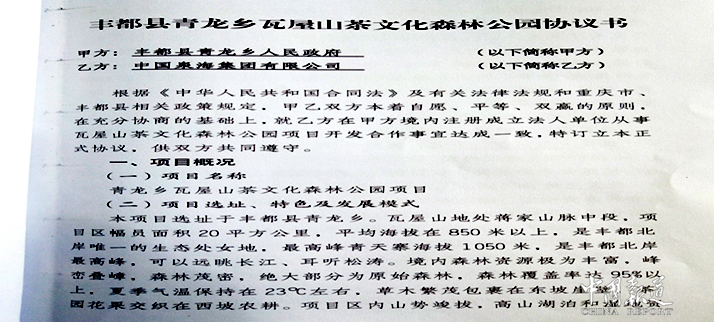 丰都县青龙乡瓦屋山茶文化森林公园协议书
甲方：丰都县青龙乡人民政府 （以下简称甲方）
乙方：中国泉海集团有限公司 （以下简称乙方）
根据《中华人民共和国合同法》及有关法律法规和重庆市、
丰都县相关政策规定，甲乙双方本着自愿、平等、双赢的原则，
在充分协商的基础上，就乙方在甲方境内注册成立法人单位从事
瓦屋山茶文化森林公园项目开发合作事宜达成一致，特订立本正
式协议，供双方共同遵守。
一、项目概况
（一）项目名称
青龙乡瓦屋山茶文化森林公园项目
（二）项目选址、特色及发展模式
本项目选址于丰都县青龙乡。瓦屋山地处蒋家山脉中段，项
目区幅员面积20平方公里，平均海拔在850米以上，是丰都北
岸唯一的生态处女地，最高峰青天寨海拔1050米，是丰都北岸
最高峰，可以远眺长江、耳听松涛。境内森林资源极为丰富，峰
峦叠嶂，森林茂密，绝大部分为原始森林，森林覆盖率达95%以
上，夏季气温保持在23℃左右，草木繁茂包裹在东坡
园花果交织在西坡农耕。项目区内山势竣拔，高山湖泊和湿地资
中国报道
CHINA REPORT